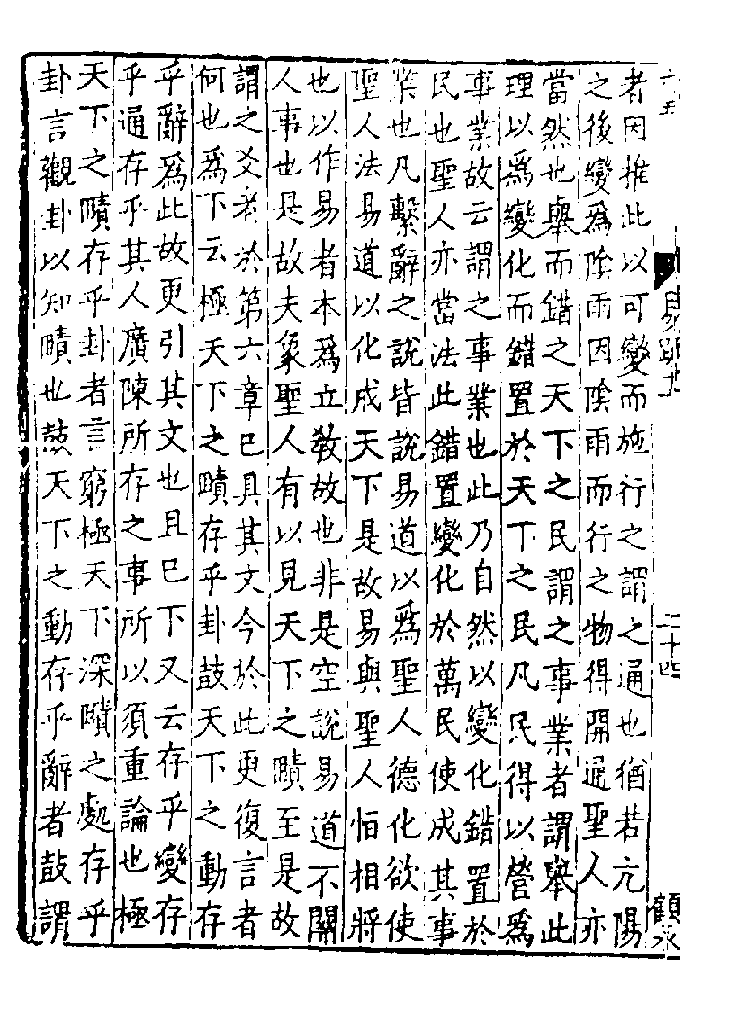 二十四
者因推此以可變而施行之謂之通也猶若亢陽
之後變爲陰雨因陰雨而行之物得開通聖人亦
當然也舉而錯之天下之民謂之事業者謂舉此
理以爲變化而錯置於天下之民凡民得以營爲
事業故云謂之事業也此乃自然以變化錯置於
民也聖人亦當法此錯置變化於萬民使成其事
業也凡繫辭之說皆說易道以爲聖人德化欲使
聖人法易道以化成天下是故易與聖人恒相將
也以作易者本爲立教故也非是空說易道不關
人事也是故夫象聖人有以見天下之賾至是故
謂之爻者於第六章已具其文今於此更復言者
何也爲下云極天下之賾存乎卦鼓天下之動存
乎辭爲此故更引其文也且已下又云存乎變存
乎通存乎其人廣陳所存之事所以須重論也極
天下之賾存乎卦者言窮極天下深賾之處存乎
卦言觀卦以知賾也鼓天下之動存乎辭者鼓謂